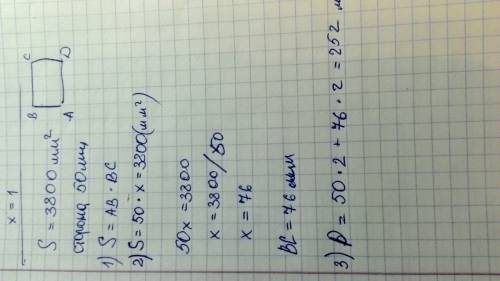 x = 1
B C
A D
S = 3800 мм²
сторона 50 мм
1) S = AB · BC
2) S = 50 · x = 3800 (мм²)
50x = 3800
x = 3800/50
x = 76
BC = 76 мм
3) P = 50 · 2 + 76 · 2 = 252 м